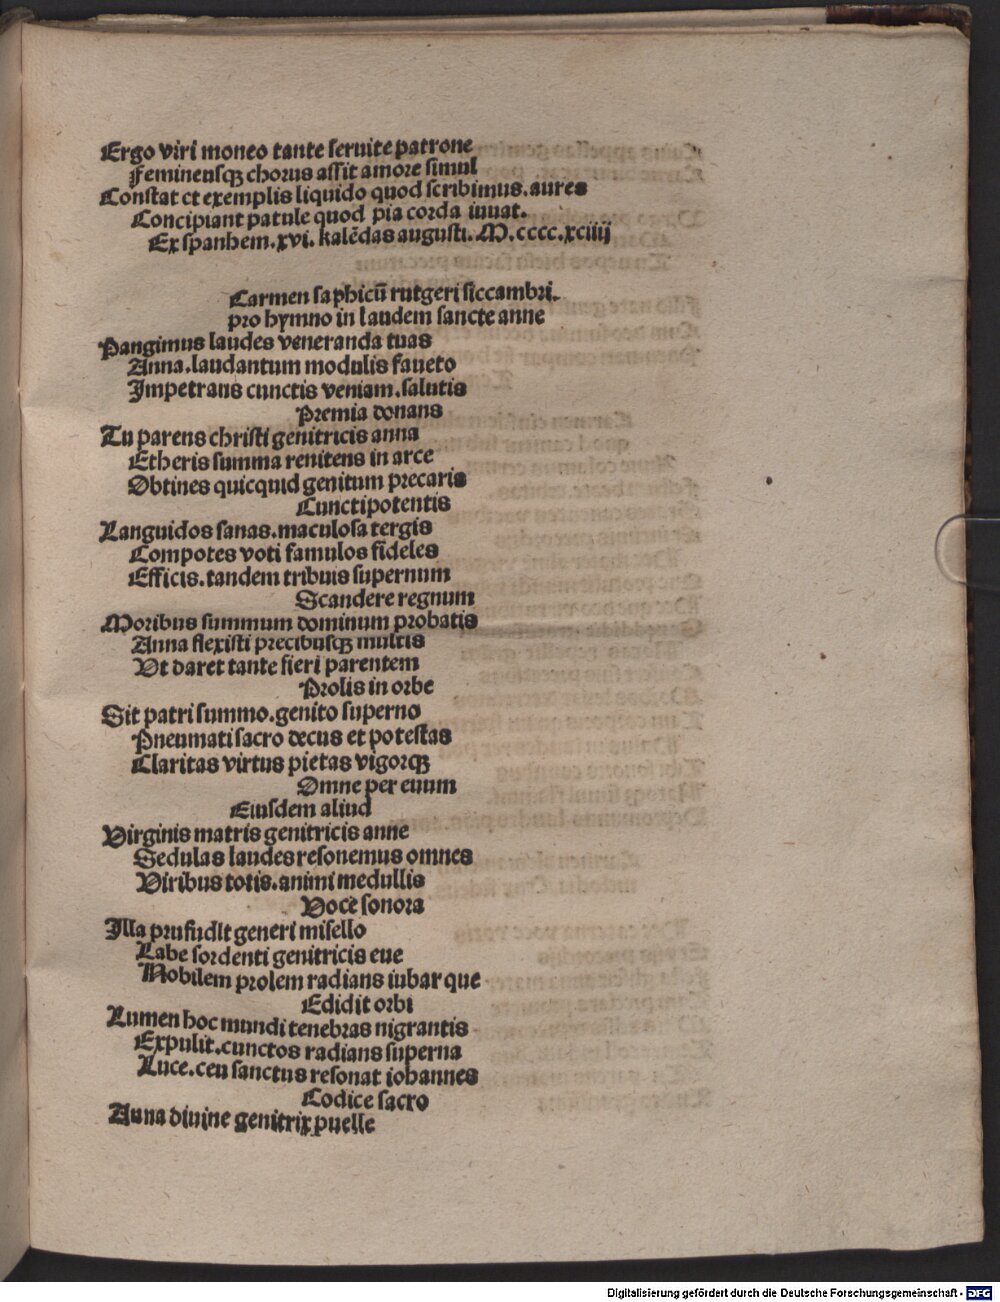 Ergo viri moneo tante seruite patrone
Femineusqꝫ chorus assit amore simul
Constat ct exemplis liquido quod scribimus. aures
Concipiant patule quod pia corda iuuat.
Ex spanhem. xvi. kalēdas augusti. M. cccc. xciiij
Carmen saphicū rutgeri siccambri.
pro hymno in laudem sancte anne
Pangimus laudes veneranda tuas
Anna. laudantum modulis faueto
Impetrans cunctis veniam. salutis
Premia donans
Tu parens christi genitricis anna
Etheris summa renitens in arce
Obtines quicquid genitum precaris
Cunctipotentis
Languidos sanas. maculosa tergis
Compotes voti famulos fideles
Efficis. tandem tribuis supernum
Scandere regnum
Moribus summum dominum probatis
Anna flexisti precibusqꝫ multis
Vt daret tante fieri parentem
Prolis in orbe
Sit patri summo. genito superno
Pneumati sacro decus et potestas
Claritas virtus pietas vigorqꝫ
Omne per euum
Eiusdem aliud
Virginis matris genitricis anne
Sedulas laudes resonemus omnes
Viribus totis. animi medullis
Voce sonora
Illa prufudit generi misello
Labe sordenti genitricis eue
Nobilem prolem radians iubar que
Edidit orbi
Lumen hoc mundi tenebras nigrantis
Expulit. cunctos radians superna
Luce. ceu sanctus resonat iohannes
Codice sacro
Anna diuine genitrix puelle
Digitalisierung gefördert durch die Deutsche Forschungsgemeinschaft - DFG